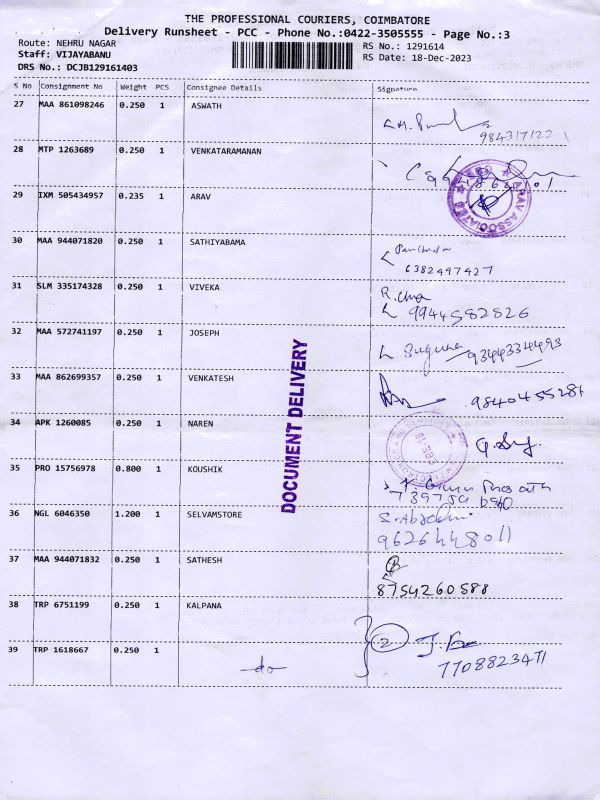 THE PROFESSIONAL COURIERS, COIMBATORE
Delivery Runsheet - PCC - Phone No.:0422-3505555 - Page No.:3
Route: NEHRU NAGAR
RS No.: 1291614
Staff: VIJAYABANU
RS Date: 18-Dec-2023
DRS No.: DCJB129161403
S No Consignment No Weight PCS Consignee Details Signature
27 MAA 861098246 0.250 1 ASWATH
28 MTP 1263689 0.250 1 VENKATARAMANAN
29 IXM 505434957 0.235 1 ARAV
ARAV ASSOCIATES
30 MAA 944071820 0.250 1 SATHIYABAMA
6382497427
31 SLM 335174328 0.250 1 VIVEKA
9944582826
32 MAA 572741197 0.250 1 JOSEPH
Suguna 9344334493
33 MAA 862699357 0.250 1 VENKATESH
34 APK 1260085 0.250 1 NAREN
35 PRO 15756978 0.800 1 KOUSHIK
36 NGL 6046350 1.200 1 SELVAMSTORE
9626448011
37 MAA 944071832 0.250 1 SATHESH
8754260588
38 TRP 6751199 0.250 1 KALPANA
2
39 TRP 1618667 0.250 1 do
7708823471
DOCUMENT DELIVERY